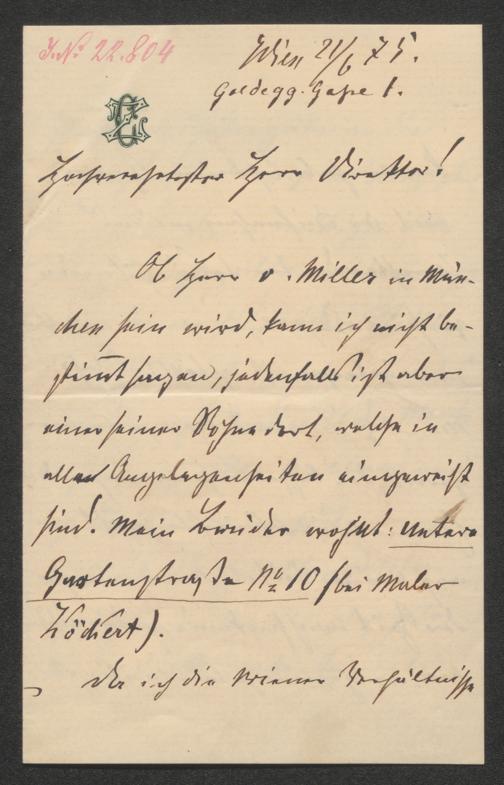 J.N. 22.804
Wien 21/6 75.
Goldegg-Gasse 1.
Hochverehrtester Herr Direktor!
Ob Herr v. Miller in Mün-
chen sein wird, kann ich nicht be-
stimmt sagen, jedenfalls ist aber
einer seiner Söhne dort, welche in
allen Angelegenheiten eingeweiht
sind. Mein Bruder wohnt: untere
Gartenstraße No 10 (bei Maler
).
Da ich die Wiener Verhältnisse